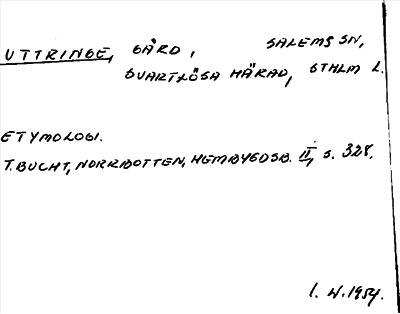 UTTRINGE, GÅRD, SALEMS SN,
SVARTLÖSA HÄRAD, STHLM L.
ETYMOLOGI.
T. BUCHT, NORRBOTTEN, HEMBYGDSB. II, S. 328.
1. W. 1954.